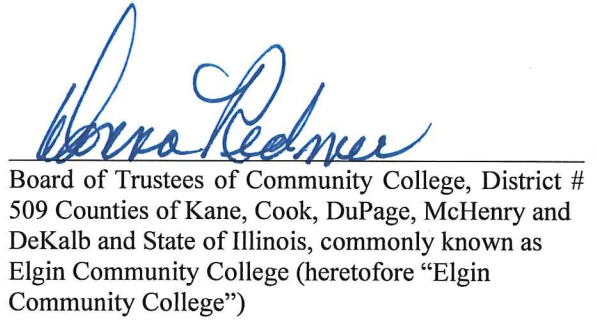 Donna Redmer
Board of Trustees of Community College, District #
509 Counties of Kane, Cook, DuPage, McHenry and
DeKalb and State of Illinois, commonly known as
Elgin Community College (heretofore “Elgin
Community College”)